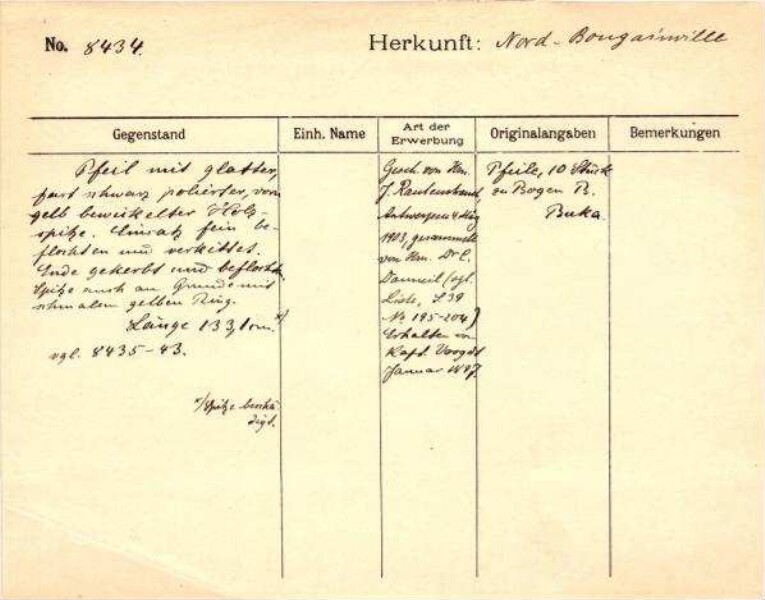 No. 8434.
Herkunft: Nord-Bougainville
Gegenstand
Einh. Name
Art der Erwerbung
Originalangaben
Bemerkungen
Pfeil mit glatter,
fast schwarz polierter, vorn
gelb bewickelter Holz-
spitze. Einsatz fein be-
flochten und verkittet.
Ende gekerbt und beflochten.
Spitze auch am Grunde mit
schmalem gelben Ring.
Länge 133,1 cm. x)
vgl. 8435-43.
x) Spitze beschä-
digt.
Gesch. von Hrn.
J. Rautenstrauch,
Antwerpen 4 Mag
1903, gesammelt
von Hrn. Dr C.
Danneil (vgl.
Liste, S 39
No 195-204)
Erhalten von
Kapt. Voogdt
Januar 1897.
Pfeile, 10 Stück
zu Bogen B.
Buka.